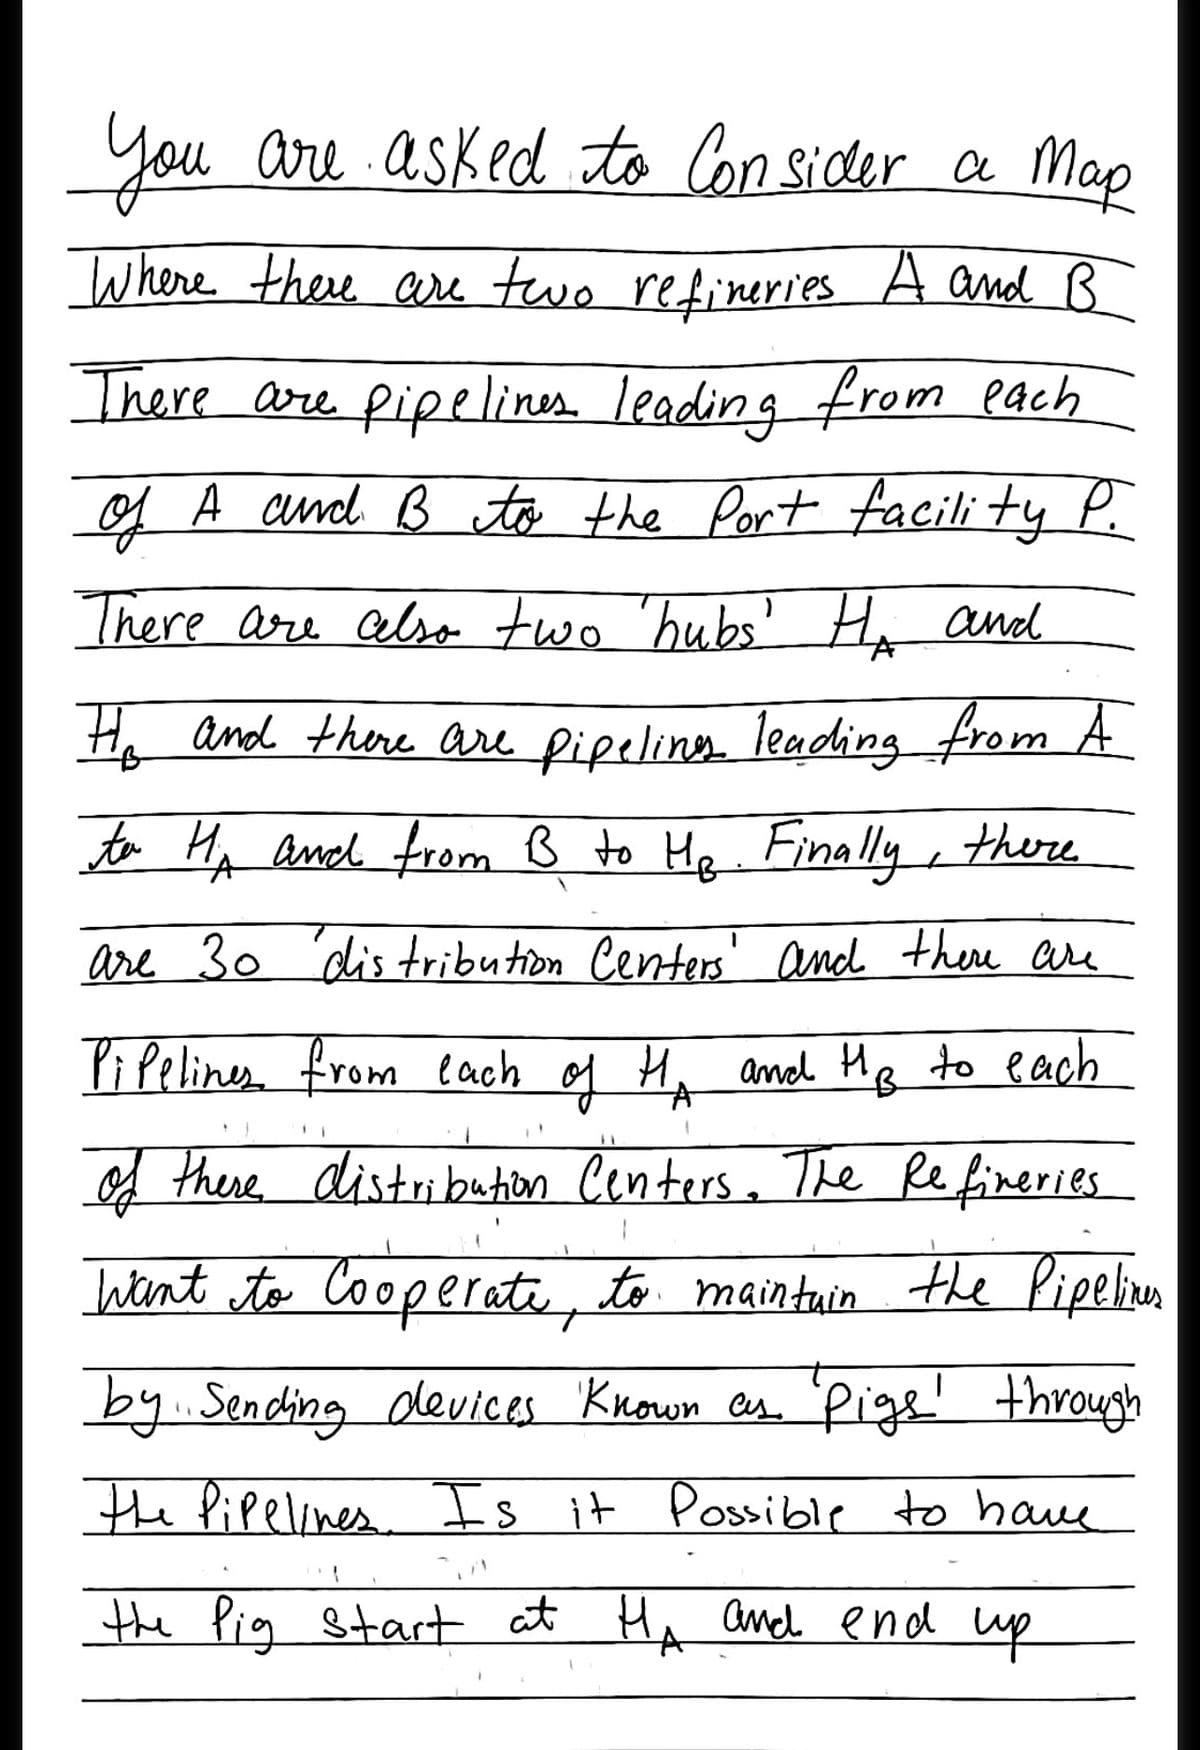 You are asked to Consider a Map
Where there are two refineries A and B
There are pipelines leading from each
of A and B to the Port facility P.
There are also two 'hubs' H_A and
H_B and there are pipelines leading from A
to H_A and from B to H_B. Finally, there
are 30 'distribution Centers' and there are
PiPelines from each of H_A and H_B to each
of these distribution Centers. The Refineries
Want to Cooperate, to maintain the Pipelines
by Sending devices Known as 'Pigs' through
the PiPelines. Is it Possible to have
the Pig Start at H_A and end up